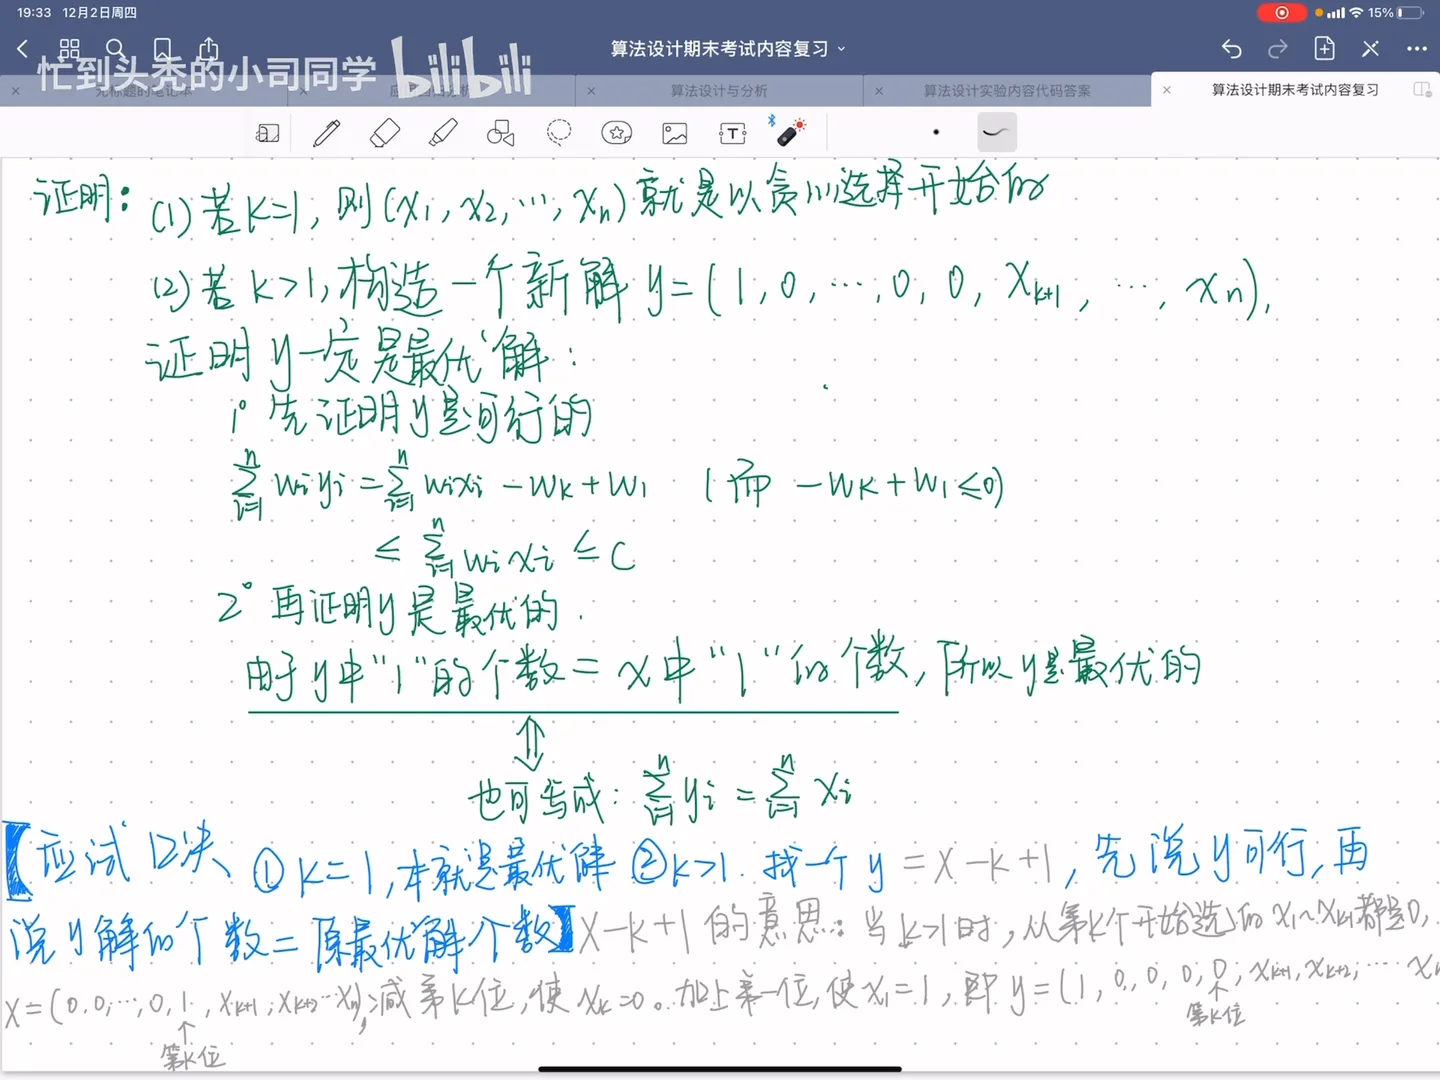 19:33 12月2日周四
15%
算法设计期末考试内容复习
忙到头秃的小司同学 bilibili
无标题的笔记本
算法设计与分析
算法设计实验内容代码答案
算法设计期末考试内容复习
证明: (1) 若k=1, 则(x₁, x₂, …, xₙ) 就是以贪心选择开始的
(2) 若k>1, 构造一个新解 y=(1, 0, …, 0, 0, xₖ₊₁, …, xₙ),
证明y一定是最优解:
1° 先证明y是可行的
∑ⁿᵢ₌₁ wᵢyᵢ = ∑ⁿᵢ₌₁ wᵢxᵢ - wₖ + w₁ (而 -wₖ + w₁ ≤ 0)
≤ ∑ⁿᵢ₌₁ wᵢxᵢ ≤ C
2° 再证明y是最优的.
由于y中"1"的个数 = x中"1"的个数, 所以y是最优的
⇕
也可写成: ∑ⁿᵢ₌₁ yᵢ = ∑ⁿᵢ₌₁ xᵢ
【应试口决 ① k=1, 本就是最优解 ② k>1. 找一个y = x-k+1, 先说y可行, 再
说y解的个数=原最优解个数】 x-k+1 的意思: 当k>1时, 从第k个开始选的 x₁~xₖ₋₁都是0,
x=(0,0,…,0,1, xₖ₊₁, xₖ₊₂…xₙ); 减第k位, 使xₖ=0。加上第一位, 使x₁=1, 即 y=(1, 0, 0, 0, 0, xₖ₊₁, xₖ₊₂, … xₙ
↑ 第k位
↑ 第k位